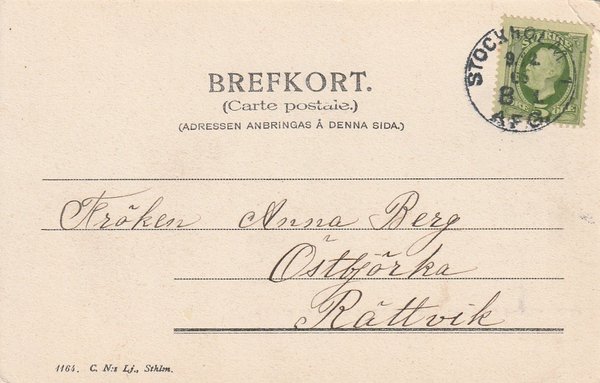 BREFKORT.
(Carte postale.)
(ADRESSEN ANBRINGAS Å DENNA SIDA.)
STOCKHOLM
8
AFG.
Fröken Anna Berg
Östbjörka
Rättvik
1164. C. N:s Lj., Sthlm.